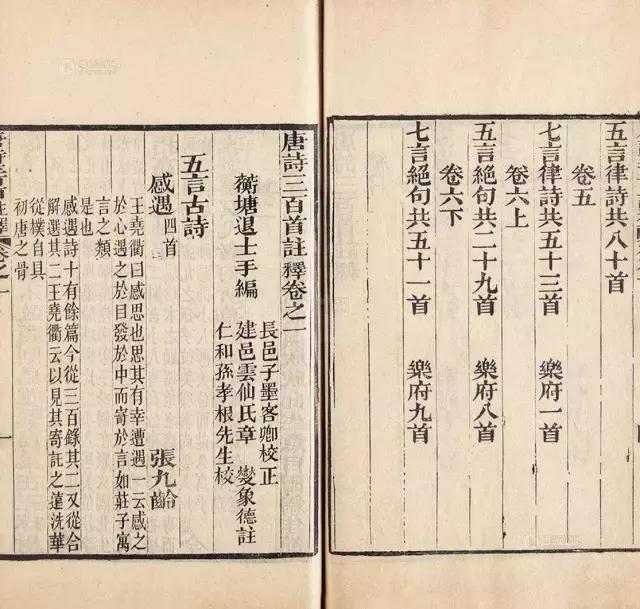 五言律詩共八十首
卷五
七言律詩共五十三首 樂府一首
卷六上
五言絕句共二十九首 樂府八首
卷六下
七言絕句共五十一首 樂府九首
唐詩三百首註釋卷之一
蘅塘退士手編
長邑子墨客卿校正
建邑雲仙氏章 燮象德註
仁和孫孝根先生校
五言古詩
感遇 四首 張九齡
王堯衢曰感思也思其有幸遭遇一云感之
於心遇之於目發於中而寄於言如莊子寓
言之類
是也
感遇詩十有餘篇今從三百錄其二又從合
解選其二王堯衢云以見其寄託之遠洗華
從樸自具
初唐之骨